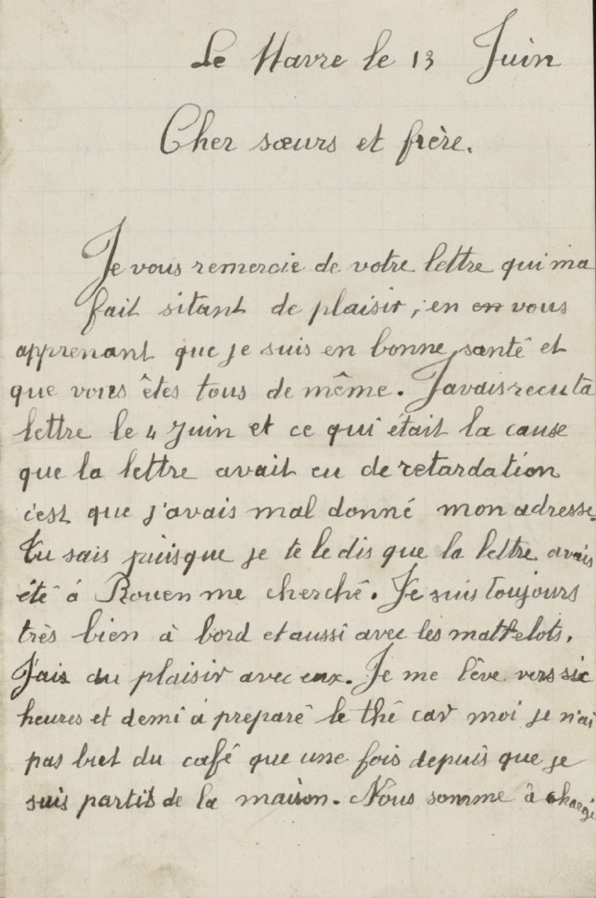 Le Havre le 13 Juin
Cher sœurs et frère.
Je vous remercie de votre lettre qui ma
fait sitant de plaisir, en en vous
apprenant que je suis en bonne santé et
que vous êtes tous de même. Javais recu ta
lettre le 4 Juin et ce qui était la cause
que la lettre avait eu de retardation
c'est que j'avais mal donné mon adresse.
Tu sais puisque je te le dis que la lettre avais
été á Rouen me cherché. Je suis toujours
très bien à bord et aussi avec les mattelots.
J'ais du plaisir avec eux. Je me lève vers six
heures et demi á preparé le thé car moi je n'ai
pas but du café que une fois depuis que je
suis partis de la maison. Nous somme à chargé